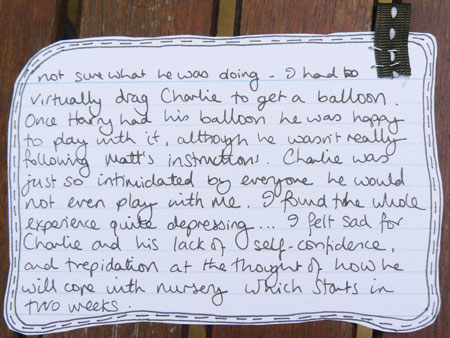 not sure what he was doing - I had to
virtually drag Charlie to get a balloon.
Once Harry had his balloon he was happy
to play with it, although he wasn't really
following Matt's instructions. Charlie was
just so intimidated by everyone he would
not even play with me. I found the whole
experience quite depressing... I felt sad for
Charlie and his lack of self-confidence,
and trepidation at the thought of how he
will cope with nursery which starts in
two weeks.